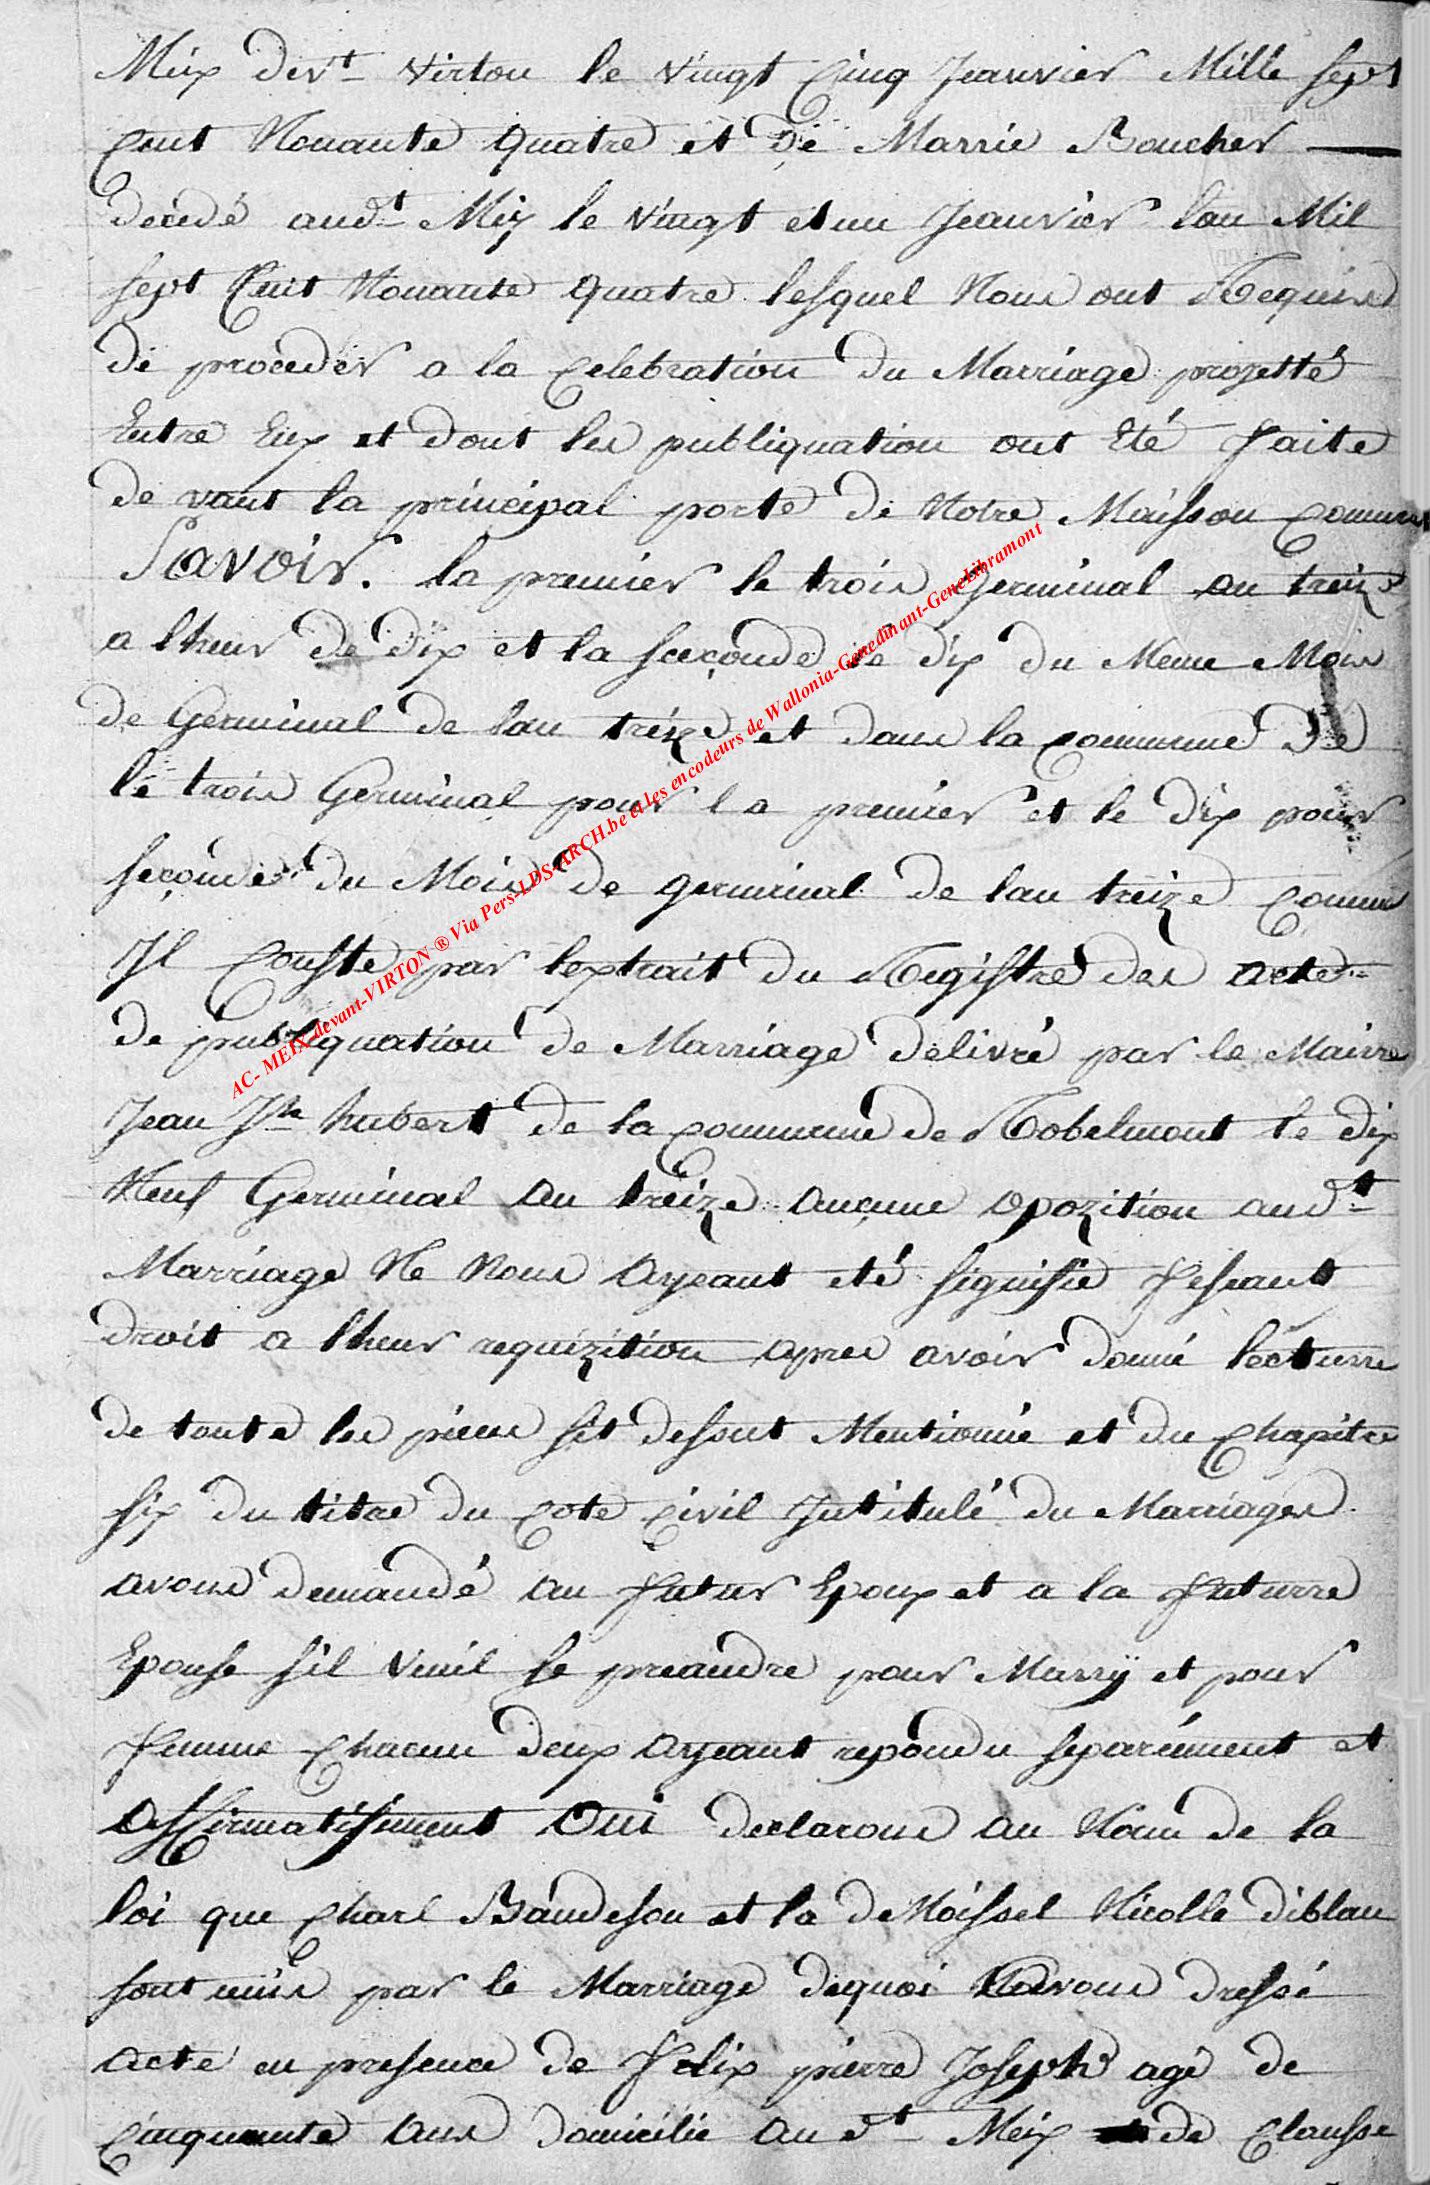 Meix dev.t Virton le vingt Cinq Jeanvier Mille sept
Cent Nonante Quatre et de Marrie Boucher
decedé aud.t Meix le vingt et un Jeanvier lan Mil
sept Cent Nonante Quatre lesquel Nous ont Requis
de proceder a la Celebration du Marriage projetté
Entre Eux et dont les publiquation ont Eté faite
de vant la principal porte de Notre Maisson Commune
Savoir. la premier le trois Germinal an treize
a lheur de dix et la seconde le dix du Meme Mois
de Germinal de lan treize et dans la Commune de
le trois Germinal pour la premier et le dix pour
seconde du Mois de germinal de lan treize Comme
Il Conste par lextrait du Registre des acte
de publiquation de Marriage delivré par le Mairre
Jean Jh hubert de la Commune de Robelmont le dix
Neuf Germinal an treize aucune opozition aud.t
Marriage Ne Nous ayeant eté signifie feseant
droit a lheur requizition apres avoir donné lecturre
de toute les pieces sit dessut Mentionné et du Chapitre
six du titre du Cote Civil Intitulé du Marriages
avons demandé au futur Epoux et a la futurre
Epouse sil veuil se preandre pour Marry et pour
femme Chacun deux ayeant repondu separément et
affirmatifment Oui declarons au Nom de la
loi que Charl Baudeson et la deMoissel Nicolle diblan
sont unis par le Marriage dequoi avons dressé
acte en presence de felix pierre Joseph agé de
Cinquante ans domicilié au d.t Meix de Clausse
AC- MEIX-devant-VIRTON ® Via Pers-LDS-ARCH.be et les encodeurs de Wallonia-Genedinant-GeneLibramont